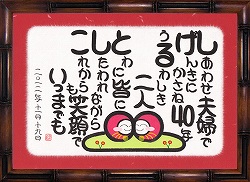 しあわせ夫婦で
げんきに
かさね40年
うるわしき
二人
とわに皆に
したわれながら
これからも笑顔で
いつまでも
二〇二二年十一月十九日